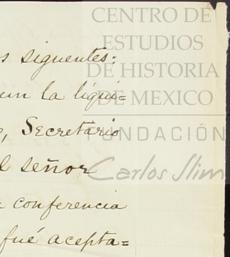 CENTRO DE
ESTUDIOS
DE HISTORIA
DE MEXICO
FUNDACIÓN
Carlos Slim
siguentes:
la liqui=
Secretario
señor
conferencia
fué acepta=